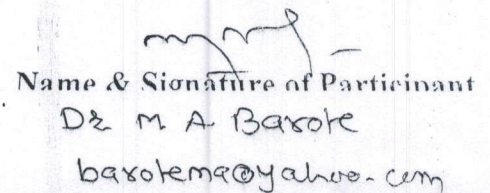 Name & Signature of Participant
Dr M A Barote
barotema@yahoo.com